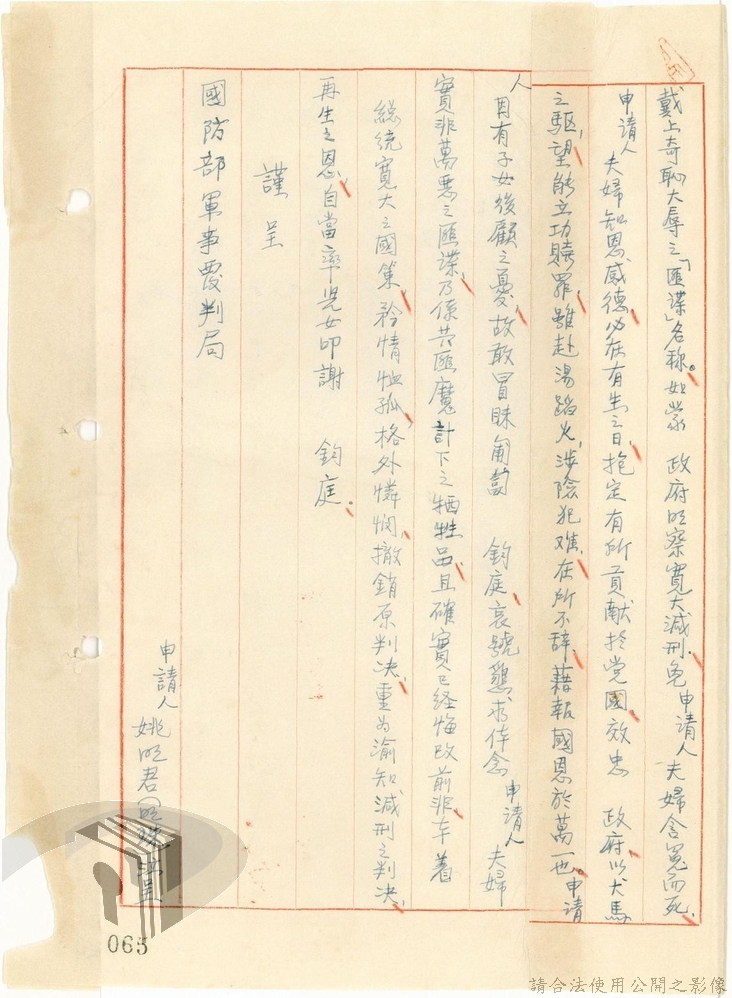 戴上奇恥大辱之「匪諜」名称。如蒙　政府明察寬大減刑、免申請人夫婦含冤而死、
申請人夫婦知恩感德、必在有生之日、抱定有所貢献於党國、效忠　政府、以犬馬
之驅、望能立功贖罪、雖赴湯蹈火、涉險犯难、在所不辞、藉報國恩於萬一也。申請
人因有子女後顧之憂、故敢冒昧匍匐　鈞庭、哀號懇求体念申請人夫婦
實非萬悪之匪諜、乃係共匪魔計下之牺牲品、且確實已経悔改前非、本着
総統寬大之國策、矜情恤孤、格外憐憫、撤銷原判决、重为渝知減刑之判决、
再生之恩、自當率児女叩謝　鈞庭。
謹呈
國防部軍事覆判局
申請人姚明君 明珠 呈
065
請合法使用公開之影像